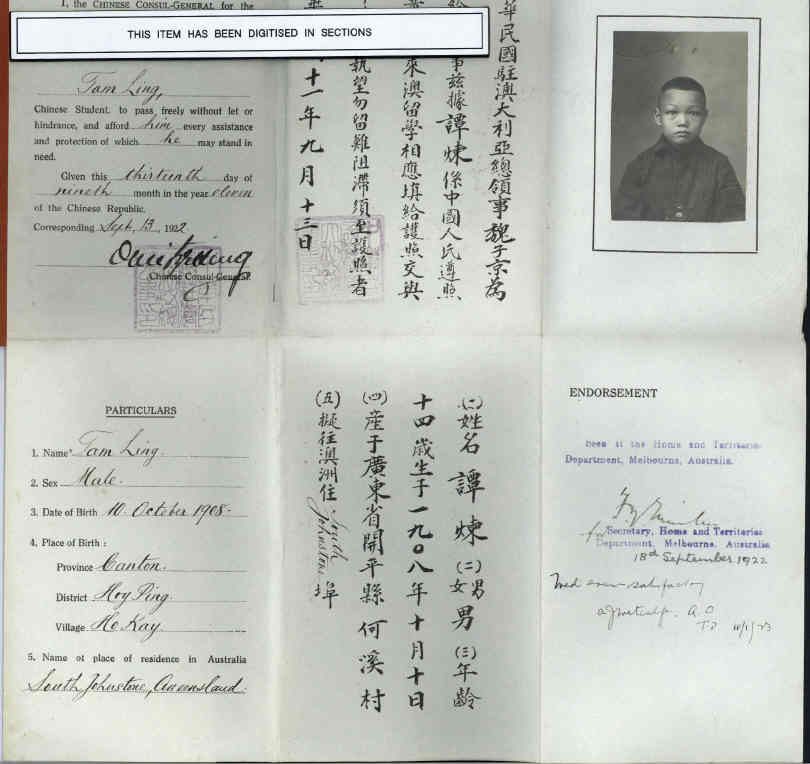 I, the CHINESE CONSUL-GENERAL for the
THIS ITEM HAS BEEN DIGITISED IN SECTIONS
Tam Ling,
Chinese Student, to pass freely without let or
hindrance, and afford him every assistance
and protection of which he may stand in
need.
Given this thirteenth day of
nineth month in the year eleven
of the Chinese Republic.
Corresponding Sept, 13, 1922
Chinese Consul-General.
華民國駐澳大利亞總領事魏子京為
事茲據譚煉係中國人民遵照
來澳留學相應填給護照交與
執望勿留難阻滯須至護照者
十一年九月十三日
PARTICULARS
1. Name Tam Ling.
2. Sex Male.
3. Date of Birth 10. October 1908.
4. Place of Birth :
Province Canton.
District Hoy Ping.
Village He Kay.
5. Name of place of residence in Australia
South Johnstone, Queensland.
(一)姓名 譚煉 (二)男女 男 (三)年齡
十四歲生于一九〇八年十月十日
(四)產于廣東省開平縣何溪村
(五)擬往澳洲住 South Johnstone 埠
ENDORSEMENT
Seen at the Home and Territories
Department, Melbourne, Australia.
for Secretary, Home and Territories
Department, Melbourne, Australia
18th September 1922
Med exam satisfactory